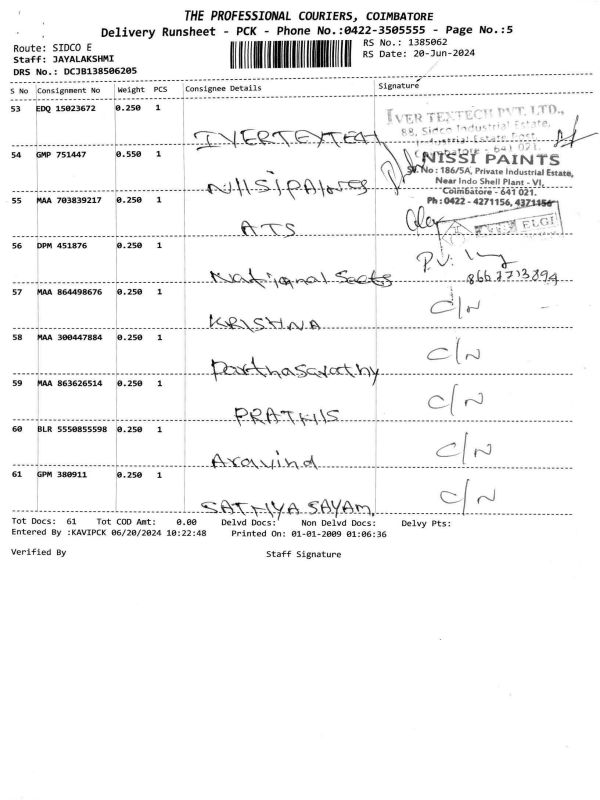 THE PROFESSIONAL COURIERS, COIMBATORE
Delivery Runsheet - PCK - Phone No.:0422-3505555 - Page No.:5
Route: SIDCO E
Staff: JAYALAKSHMI
DRS No.: DCJB138506205
RS No.: 1385062
RS Date: 20-Jun-2024
S No Consignment No Weight PCS Consignee Details Signature
53 EDQ 15023672 0.250 1
IVERTEXTECH
IVER TEXTECH PVT. LTD.,
88, Sidco Industrial Estate,
Industrial Estate Post,
Coimbatore - 641 021.
54 GMP 751447 0.550 1
NISSI PAINTS
SF.No : 186/5A, Private Industrial Estate,
Near Indo Shell Plant - VI,
Coimbatore - 641 021.
Ph : 0422 - 4271156, 4371156
55 MAA 703839217 0.250 1
ATS
ELGI
56 DPM 451876 0.250 1
National Seets
8667713894
57 MAA 864498676 0.250 1
KRISHNA
C/N
58 MAA 300447884 0.250 1
Parthasarathy
C/N
59 MAA 863626514 0.250 1
PRATHIS
C/N
60 BLR 5550855598 0.250 1
Aravind
C/N
61 GPM 380911 0.250 1
SATHYA SAYAM
C/N
Tot Docs: 61 Tot COD Amt: 0.00 Delvd Docs: Non Delvd Docs: Delvy Pts:
Entered By :KAVIPCK 06/20/2024 10:22:48 Printed On: 01-01-2009 01:06:36
Verified By Staff Signature